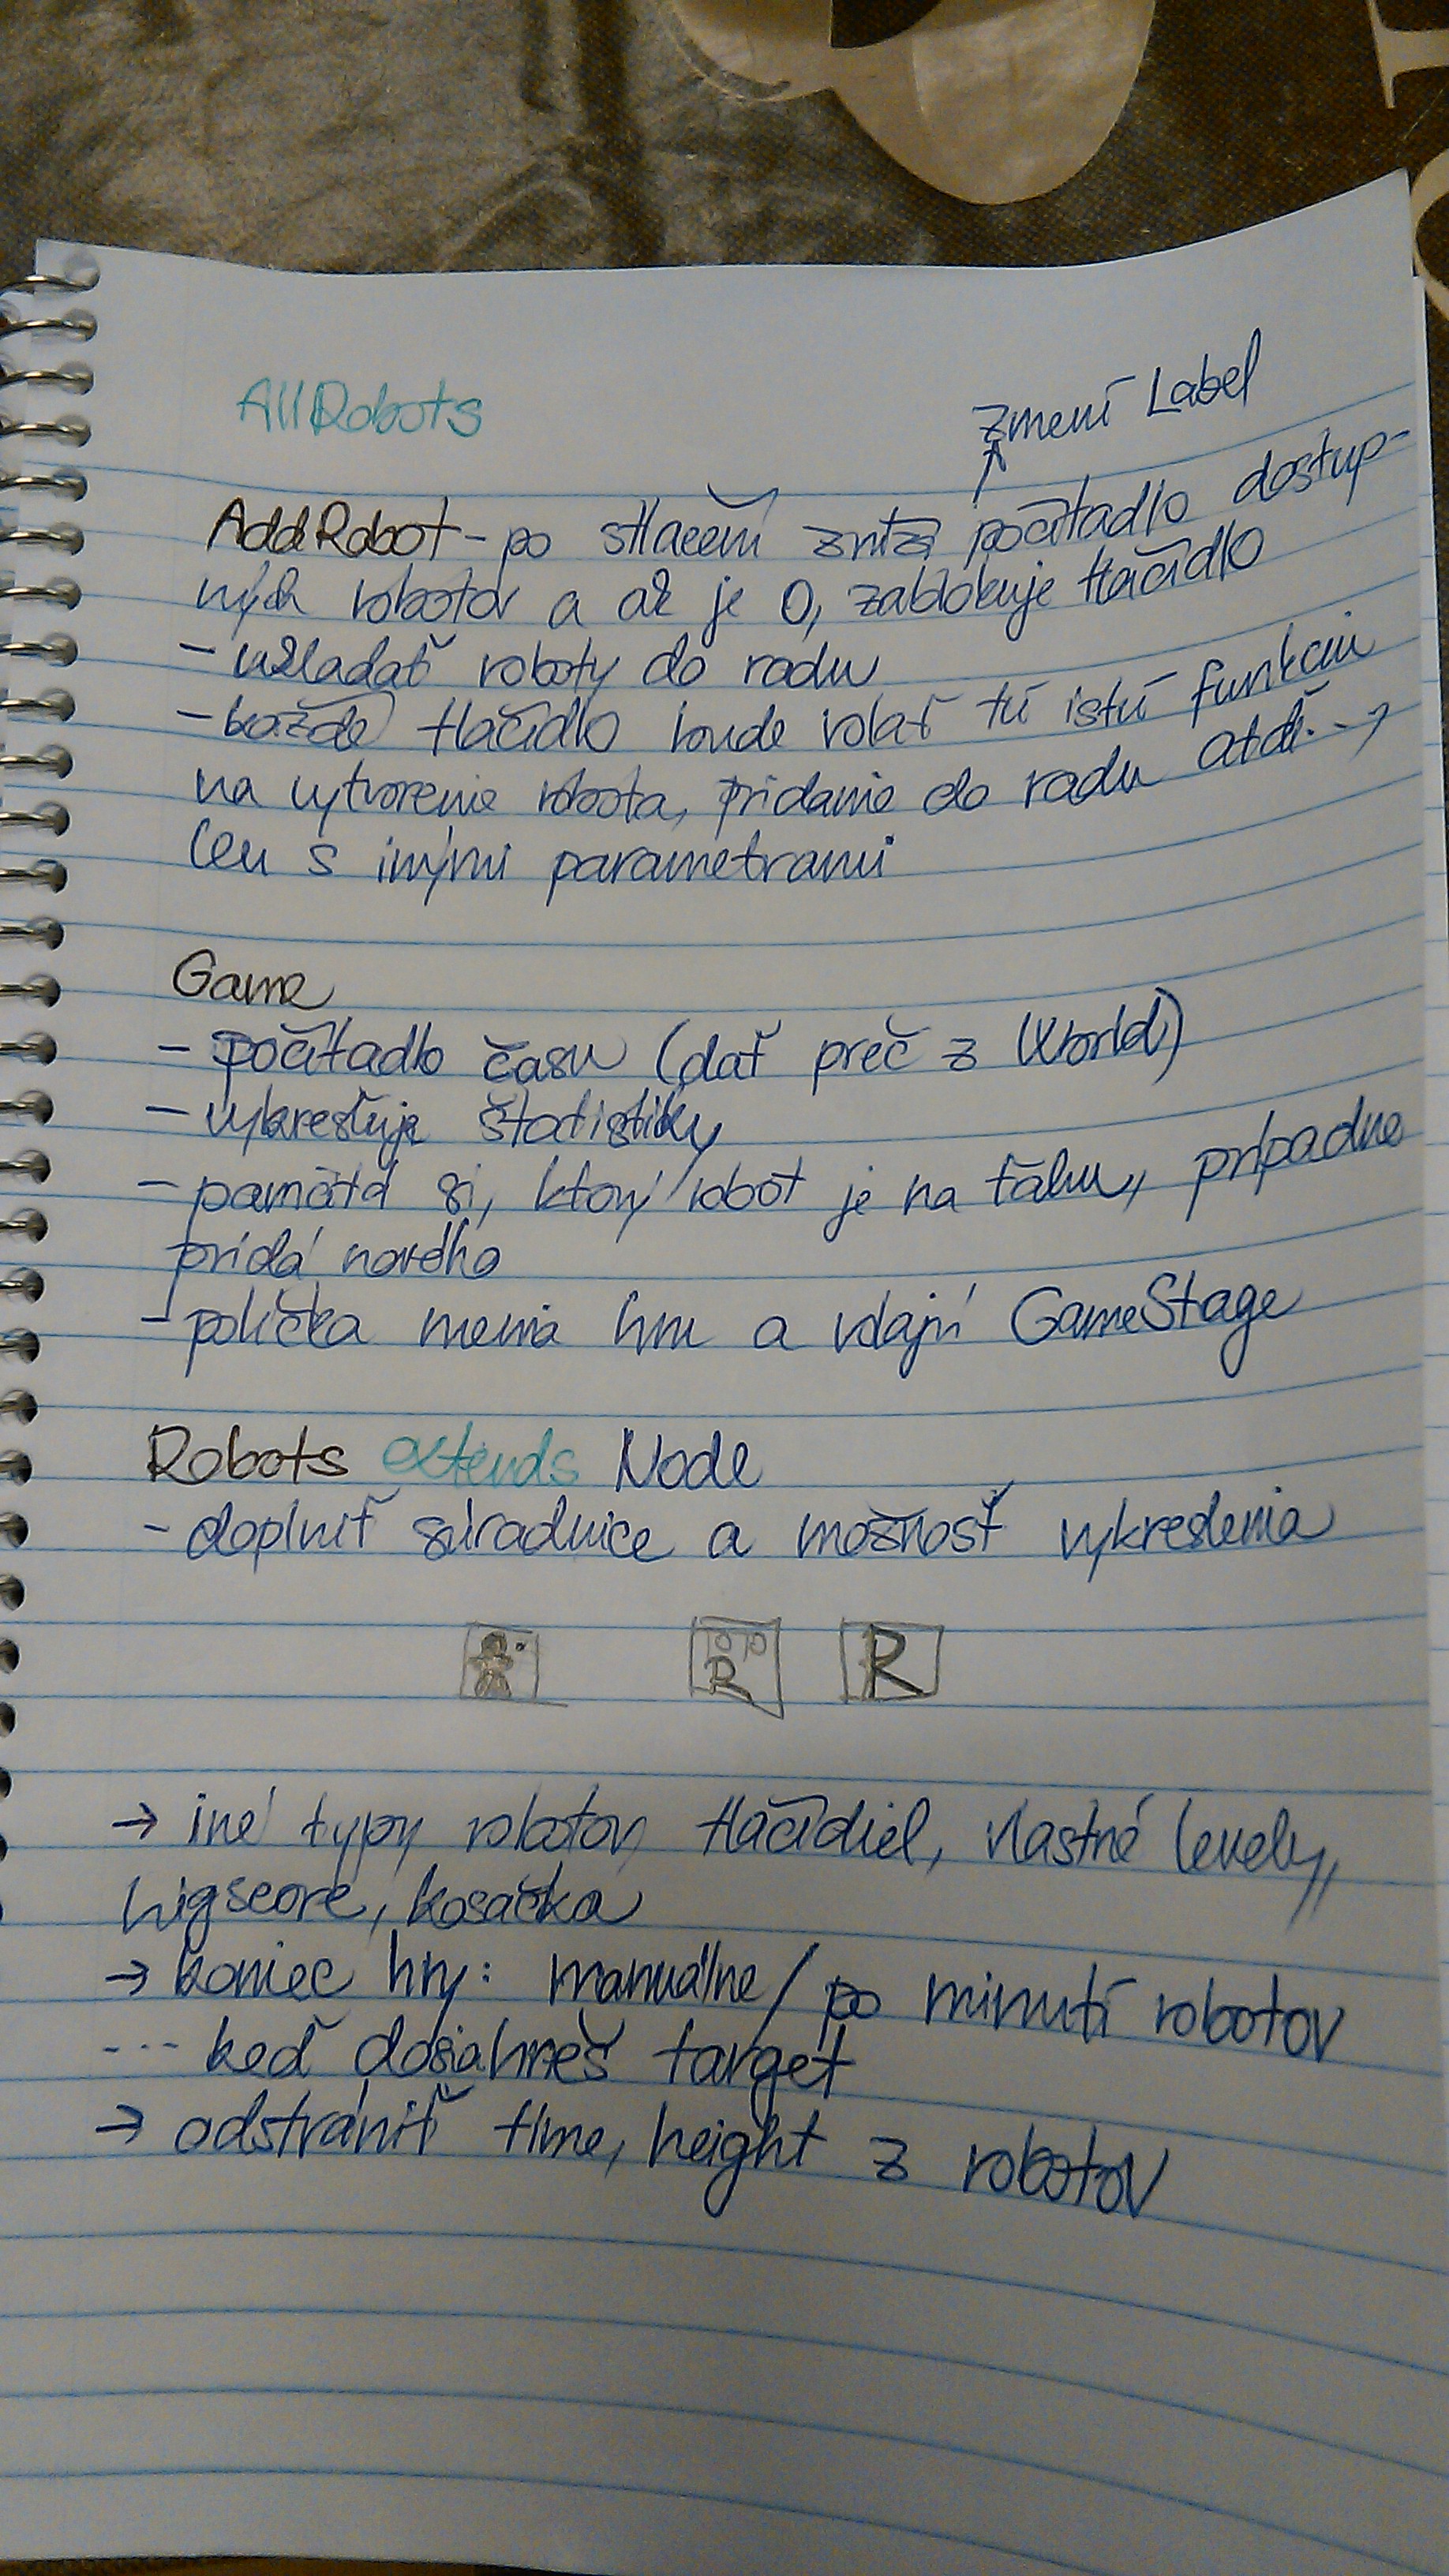 AllRobots
zmení Label
AddRobot - po stlačení zníži počítadlo dostup-
ných robotov a až je 0, zablokuje tlačidlo
- ukladať roboty do radu
- každé tlačidlo bude volať tú istú funkciu
na vytvorenie robota, pridanie do radu atď. →
len s inými parametrami
Game
- počítadlo času (dať preč z World)
- vykresľuje štatistiky
- pamätá si, ktorý robot je na ťahu, prípadne
pridá nového
- políčka menia hru a volajú GameStage
Robots extends Node
- doplniť súradnice a možnosť vykreslenia
R R
→ iné typy robotov, tlačidiel, vlastné levely,
higscore, kosačka
→ koniec hry: manuálne / po minutí robotov
... keď dosiahneš target
→ odstrániť time, height z robotov